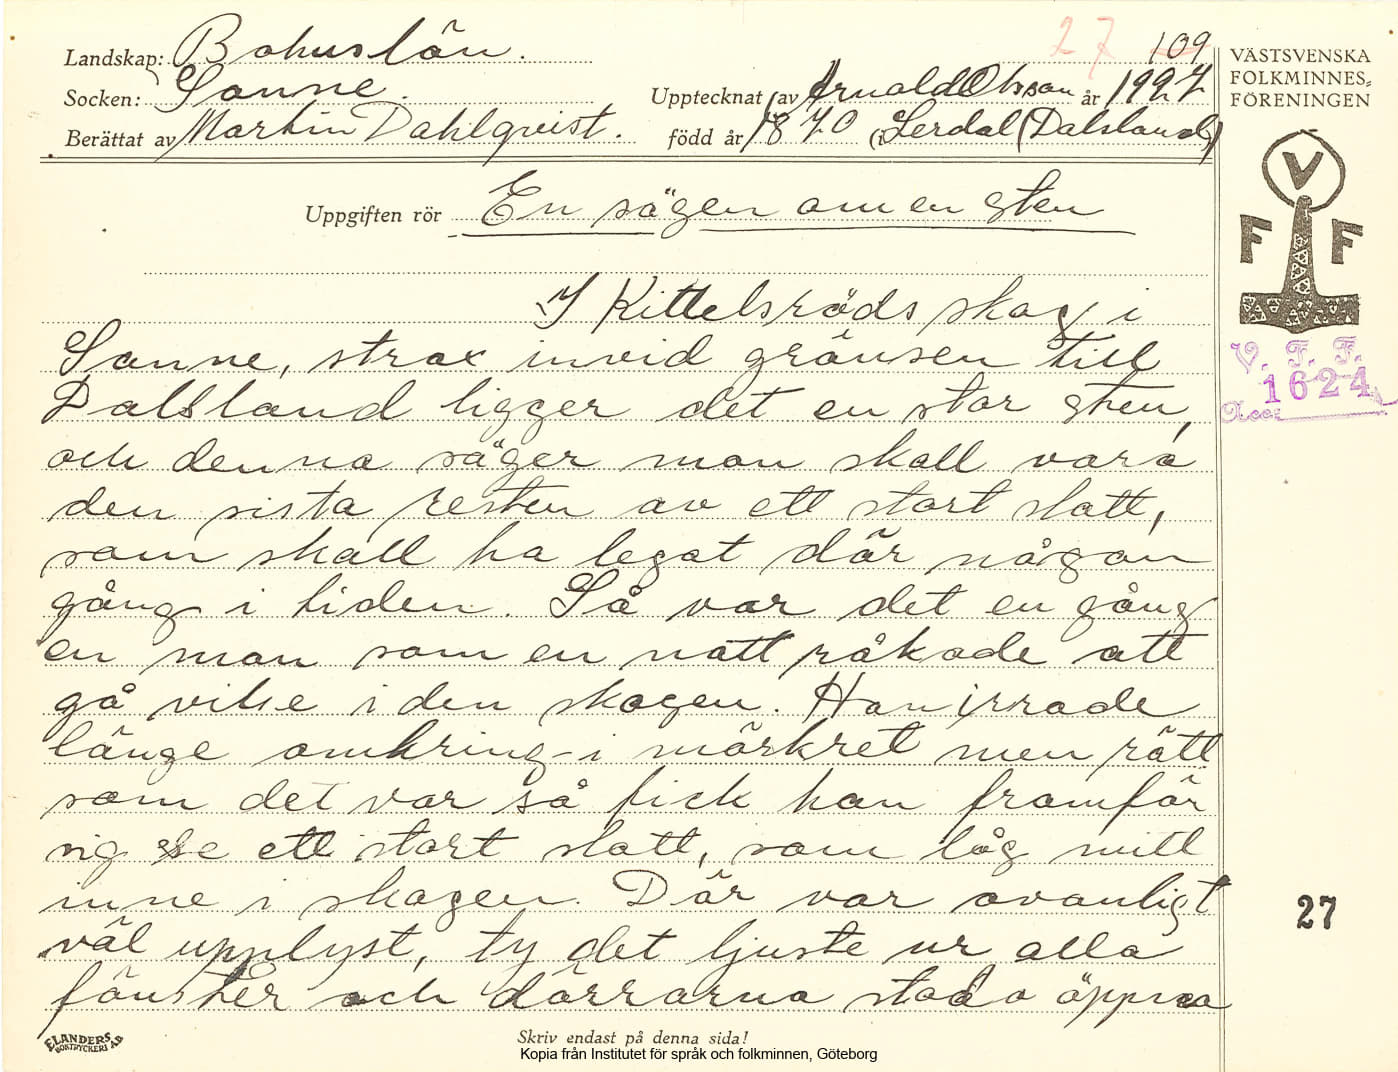 27 109
Landskap: Bohuslän.
Socken: Sanne.
Upptecknat av Arnold Olsson år 1927
Berättat av Martin Dahlqvist. född år 1870 (i Lerdal (Dalsland)
Uppgiften rör En sägen om en sten
I Kittelsröds skog i
Sanne, strax invid gränsen till
Dalsland ligger det en stor sten,
och denna säger man skall vara
den sista resten av ett stort slott,
som skall ha legat där någon
gång i tiden. Så var det en gång
en man som en natt råkade att
gå vilse i den skogen. Han irrade
länge omkring i mörkret men rätt
som det var så fick han framför
sig se ett stort slott, som låg mitt
inne i skogen. Där var ovanligt
väl upplyst, ty det ljuste ur alla
fönster och dörrarna stodo öppna
Skriv endast på denna sida!
ELANDERS
BOKTRYCKERI AB
VÄSTSVENSKA
FOLKMINNES-
FÖRENINGEN
V
F F
V. F. F.
1624
Acc:
27
Kopia från Institutet för språk och folkminnen, Göteborg